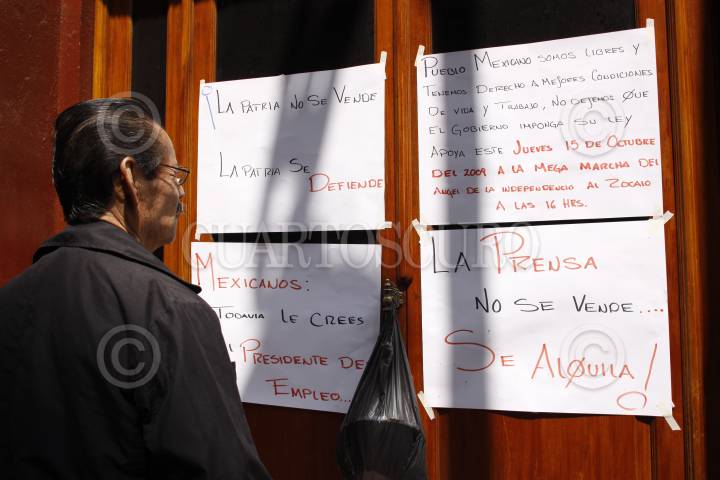 ¡LA PATRIA NO SE VENDE
LA PATRIA SE
DEFIENDE
PUEBLO MEXICANO SOMOS LIBRES Y
TENEMOS DERECHO A MEJORES CONDICIONES
DE VIDA Y TRABAJO, NO DEJEMOS QUE
EL GOBIERNO IMPONGA SU LEY
APOYA ESTE JUEVES 15 DE OCTUBRE
DEL 2009 A LA MEGA MARCHA DEL
ANGEL DE LA INDEPENDENCIA AL ZOCALO
A LAS 16 HRS.
MEXICANOS:
TODAVIA LE CREES
PRESIDENTE DEL
EMPLEO...
LA PRENSA
NO SE VENDE....
SE ALQUILA!
© CUARTOSCURO
©
©
©